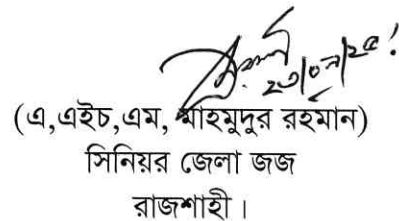 ২৩/০৯/২৫
(এ,এইচ,এম, মাহমুদুর রহমান)
সিনিয়র জেলা জজ
রাজশাহী।